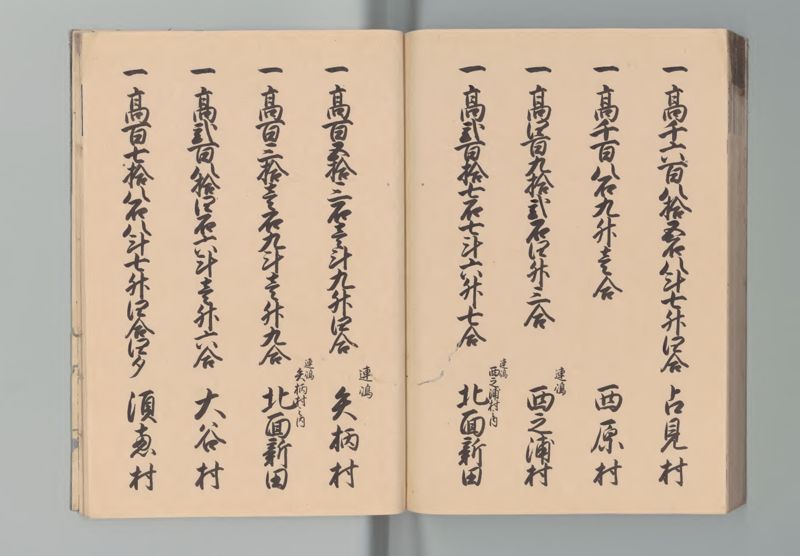 一 高千六百八拾五石八斗七升四合 占見村
一 高千百八石九升壱合 西原村
一 高四百九拾弐石四升三合 連嶋 西之浦村
一 高弐百拾七石七斗六升七合 連嶋 西之浦村之内 北面新田
一 高百五拾二石壱斗九升四合 連嶋 矢柄村
一 高百三拾壱石九斗壱升九合 連嶋 矢柄村之内 北面新田
一 高弐百八拾四石六斗壱升六合 大谷村
一 高百七拾八石八斗七升四合四夕 須恵村